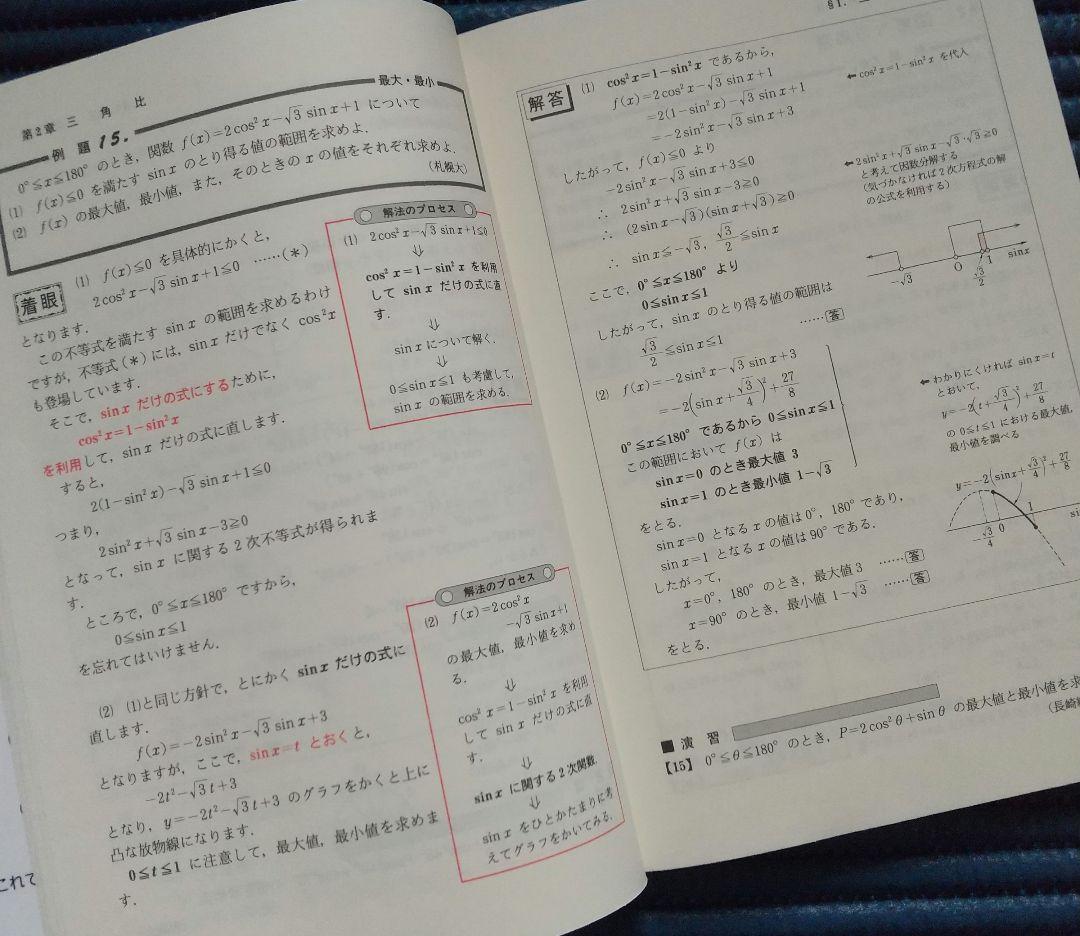 第2章 三 角 比
例 題 15. 最大・最小
0°≦x≦180° のとき，関数 f(x)=2cos²x−√3 sinx+1 について
(1) f(x)≦0 を満たす sinx のとり得る値の範囲を求めよ．
(2) f(x) の最大値，最小値，また，そのときの x の値をそれぞれ求めよ．
(札幌大)
着眼
(1) f(x)≦0 を具体的にかくと，
2cos²x−√3 sinx+1≦0 ……(＊)
となります．
この不等式を満たす sinx の範囲を求めるわけ
ですが，不等式(＊)には，sinx だけでなく cos²x
も登場しています．
そこで，sinx だけの式にするために，
cos²x=1−sin²x
を利用して，sinx だけの式に直します．
すると，
2(1−sin²x)−√3 sinx+1≦0
つまり，
2sin²x+√3 sinx−3≧0
となって，sinx に関する2次不等式が得られま
す．
ところで，0°≦x≦180° ですから，
0≦sinx≦1
を忘れてはいけません．
解法のプロセス
(1) 2cos²x−√3 sinx+1≦0
⇓
cos²x=1−sin²x を利用
して sinx だけの式に直
す．
⇓
sinx について解く．
⇓
0≦sinx≦1 も考慮して，
sinx の範囲を求める．
(2) (1)と同じ方針で，とにかく sinx だけの式に
直します．
f(x)=−2sin²x−√3 sinx+3
となりますが，ここで，sinx=t とおくと，
−2t²−√3t+3
となり，y=−2t²−√3t+3 のグラフをかくと上に
凸な放物線になります．
0≦t≦1 に注意して，最大値，最小値を求めま
す．
解法のプロセス
(2) f(x)=2cos²x
−√3 sinx+1
の最大値，最小値を求め
る．
⇓
cos²x=1−sin²x を利用
して sinx だけの式に直
す．
⇓
sinx に関する2次関数
⇓
sinx をひとかたまりに考
えてグラフをかいてみる．
これて
§1.
解答
(1) cos²x=1−sin²x であるから，
f(x)=2cos²x−√3 sinx+1
=2(1−sin²x)−√3 sinx+1
=−2sin²x−√3 sinx+3
したがって，f(x)≦0 より
−2sin²x−√3 sinx+3≦0
∴ 2sin²x+√3 sinx−3≧0
∴ (2sinx−√3)(sinx+√3)≧0
∴ sinx≦−√3，√3/2≦sinx
ここで，0°≦x≦180° より
0≦sinx≦1
したがって，sinx のとり得る値の範囲は
√3/2≦sinx≦1 ……答
(2) f(x)=−2sin²x−√3 sinx+3
=−2(sinx+√3/4)²+27/8
0°≦x≦180° であるから 0≦sinx≦1
この範囲において f(x) は
sinx=0 のとき最大値 3
sinx=1 のとき最小値 1−√3
をとる．
sinx=0 となる x の値は 0°，180° であり，
sinx=1 となる x の値は 90° である．
したがって，
x=0°，180° のとき，最大値 3 ……答
x=90° のとき，最小値 1−√3 ……答
をとる．
← cos²x=1−sin²x を代入
← 2sin²x+√3 sinx−√3·√3≧0
と考えて因数分解する
(気づかなければ2次方程式の解
の公式を利用する)
−√3 O √3/2 1 sinx
← わかりにくければ sinx=t
とおいて，
y=−2(t+√3/4)²+27/8
の 0≦t≦1 における最大値，
最小値を調べる
y=−2(sinx+√3/4)²+27/8
−√3/4 0 1
■ 演 習
【15】 0°≦θ≦180° のとき，P=2cos²θ+sinθ の最大値と最小値を求
(長崎